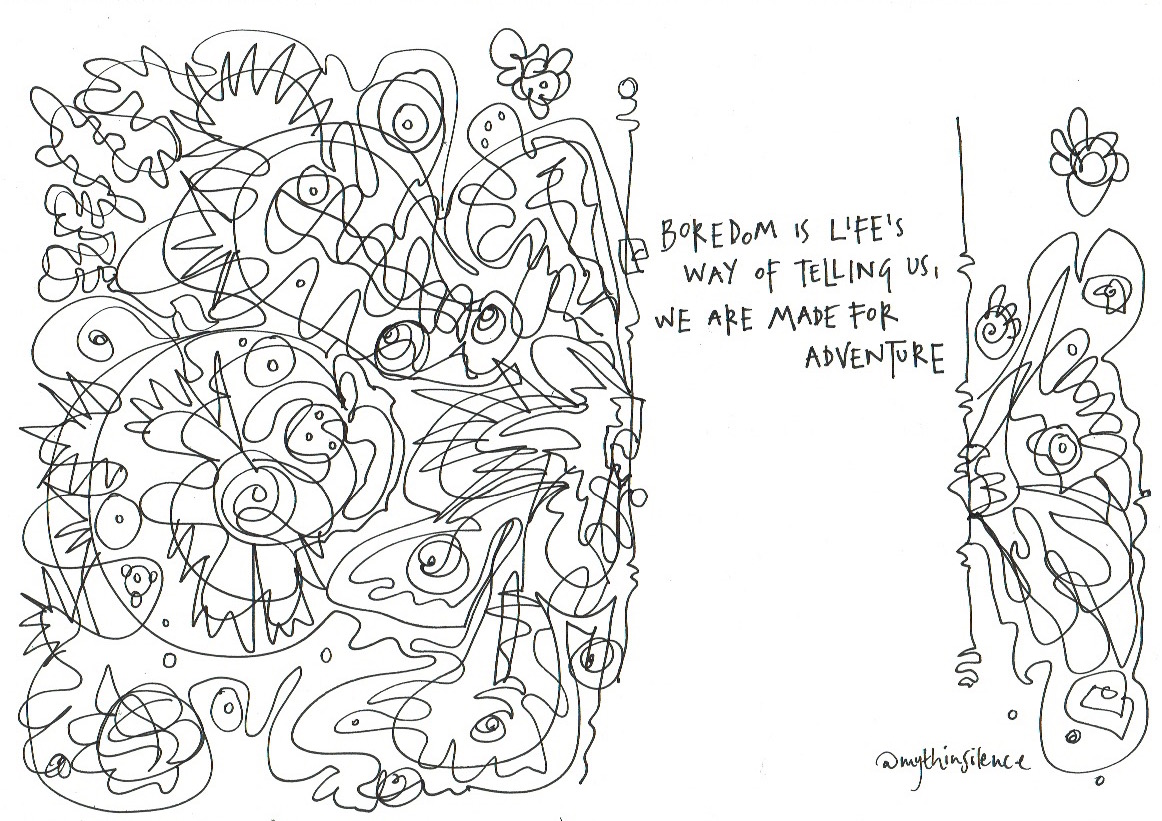 BOREDOM IS LIFE'S
WAY OF TELLING US,
WE ARE MADE FOR
ADVENTURE
@mythinsilence